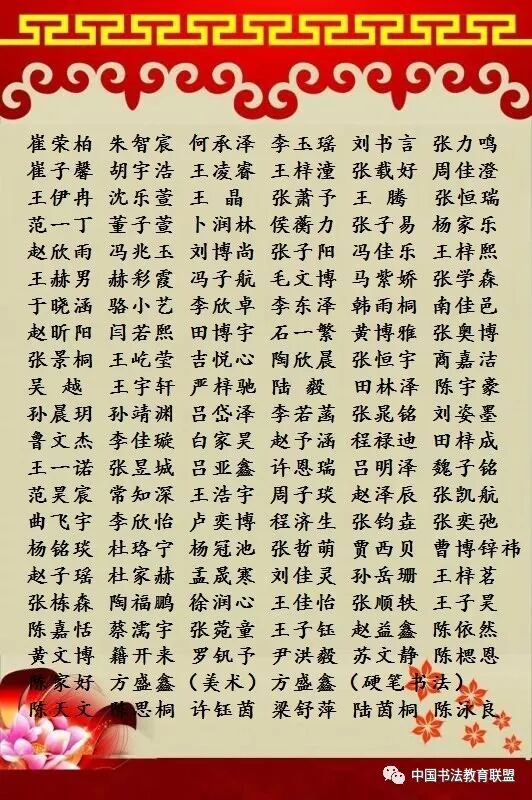 崔荣柏 朱智宸 何承泽 李玉瑶 刘书言 张力鸣
崔子馨 胡宇浩 王凌睿 王梓潼 张载好 周佳澄
王伊冉 沈乐萱 王 晶 张萧予 王 腾 张恒瑞
范一丁 董子萱 卜润林 侯蘅力 张子易 杨家乐
赵欣雨 冯兆玉 刘博尚 张子阳 冯佳乐 王梓熙
王赫男 赫彩霞 冯子航 毛文博 马紫娇 张学森
于晓涵 骆小艺 李欣卓 李东泽 韩雨桐 南佳邑
赵昕阳 闫若熙 田博宇 石一繁 黄博雅 张奥博
张景桐 王屹莹 吉悦心 陶欣晨 张恒宇 商嘉洁
吴 越 王宇轩 严梓驰 陆 毅 田林泽 陈宇豪
孙晨玥 孙靖渊 吕岱泽 李若菡 张晁铭 刘姿墨
鲁文杰 李佳璇 白家昊 赵予涵 程禄迪 田梓成
王一诺 张昱城 吕亚鑫 许恩瑞 吕明泽 魏子铭
范昊宸 常知深 王浩宇 周子琰 赵泽辰 张凯航
曲飞宇 李欣怡 卢奕博 程济生 张钧垚 张奕弛
杨铭琰 杜珞宁 杨冠池 张哲萌 贾西贝 曹博锌祎
赵子瑶 杜家赫 孟晟寒 刘佳灵 孙岳珊 王梓茗
张栋森 陶福鹏 徐润心 王佳怡 张顺轶 王子昊
陈嘉恬 蔡濡宇 张菀童 王子钰 赵益鑫 陈依然
黄文博 籍开来 罗钒予 尹洪毅 苏文静 陈楒恩
陈家好 方盛鑫（美术）方盛鑫（硬笔书法）
陈天文 陈思桐 许钰茵 梁舒萍 陆茵桐 陈泳良
中国书法教育联盟